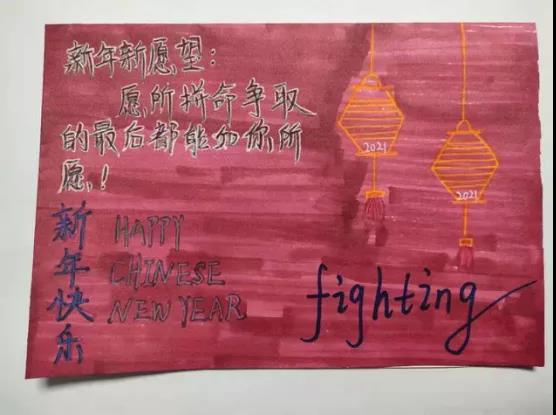 新年新愿望：
愿所拼命争取
的最后都能如你所
愿！
新年快乐
HAPPY
CHINESE
NEW YEAR
fighting
2021
2021